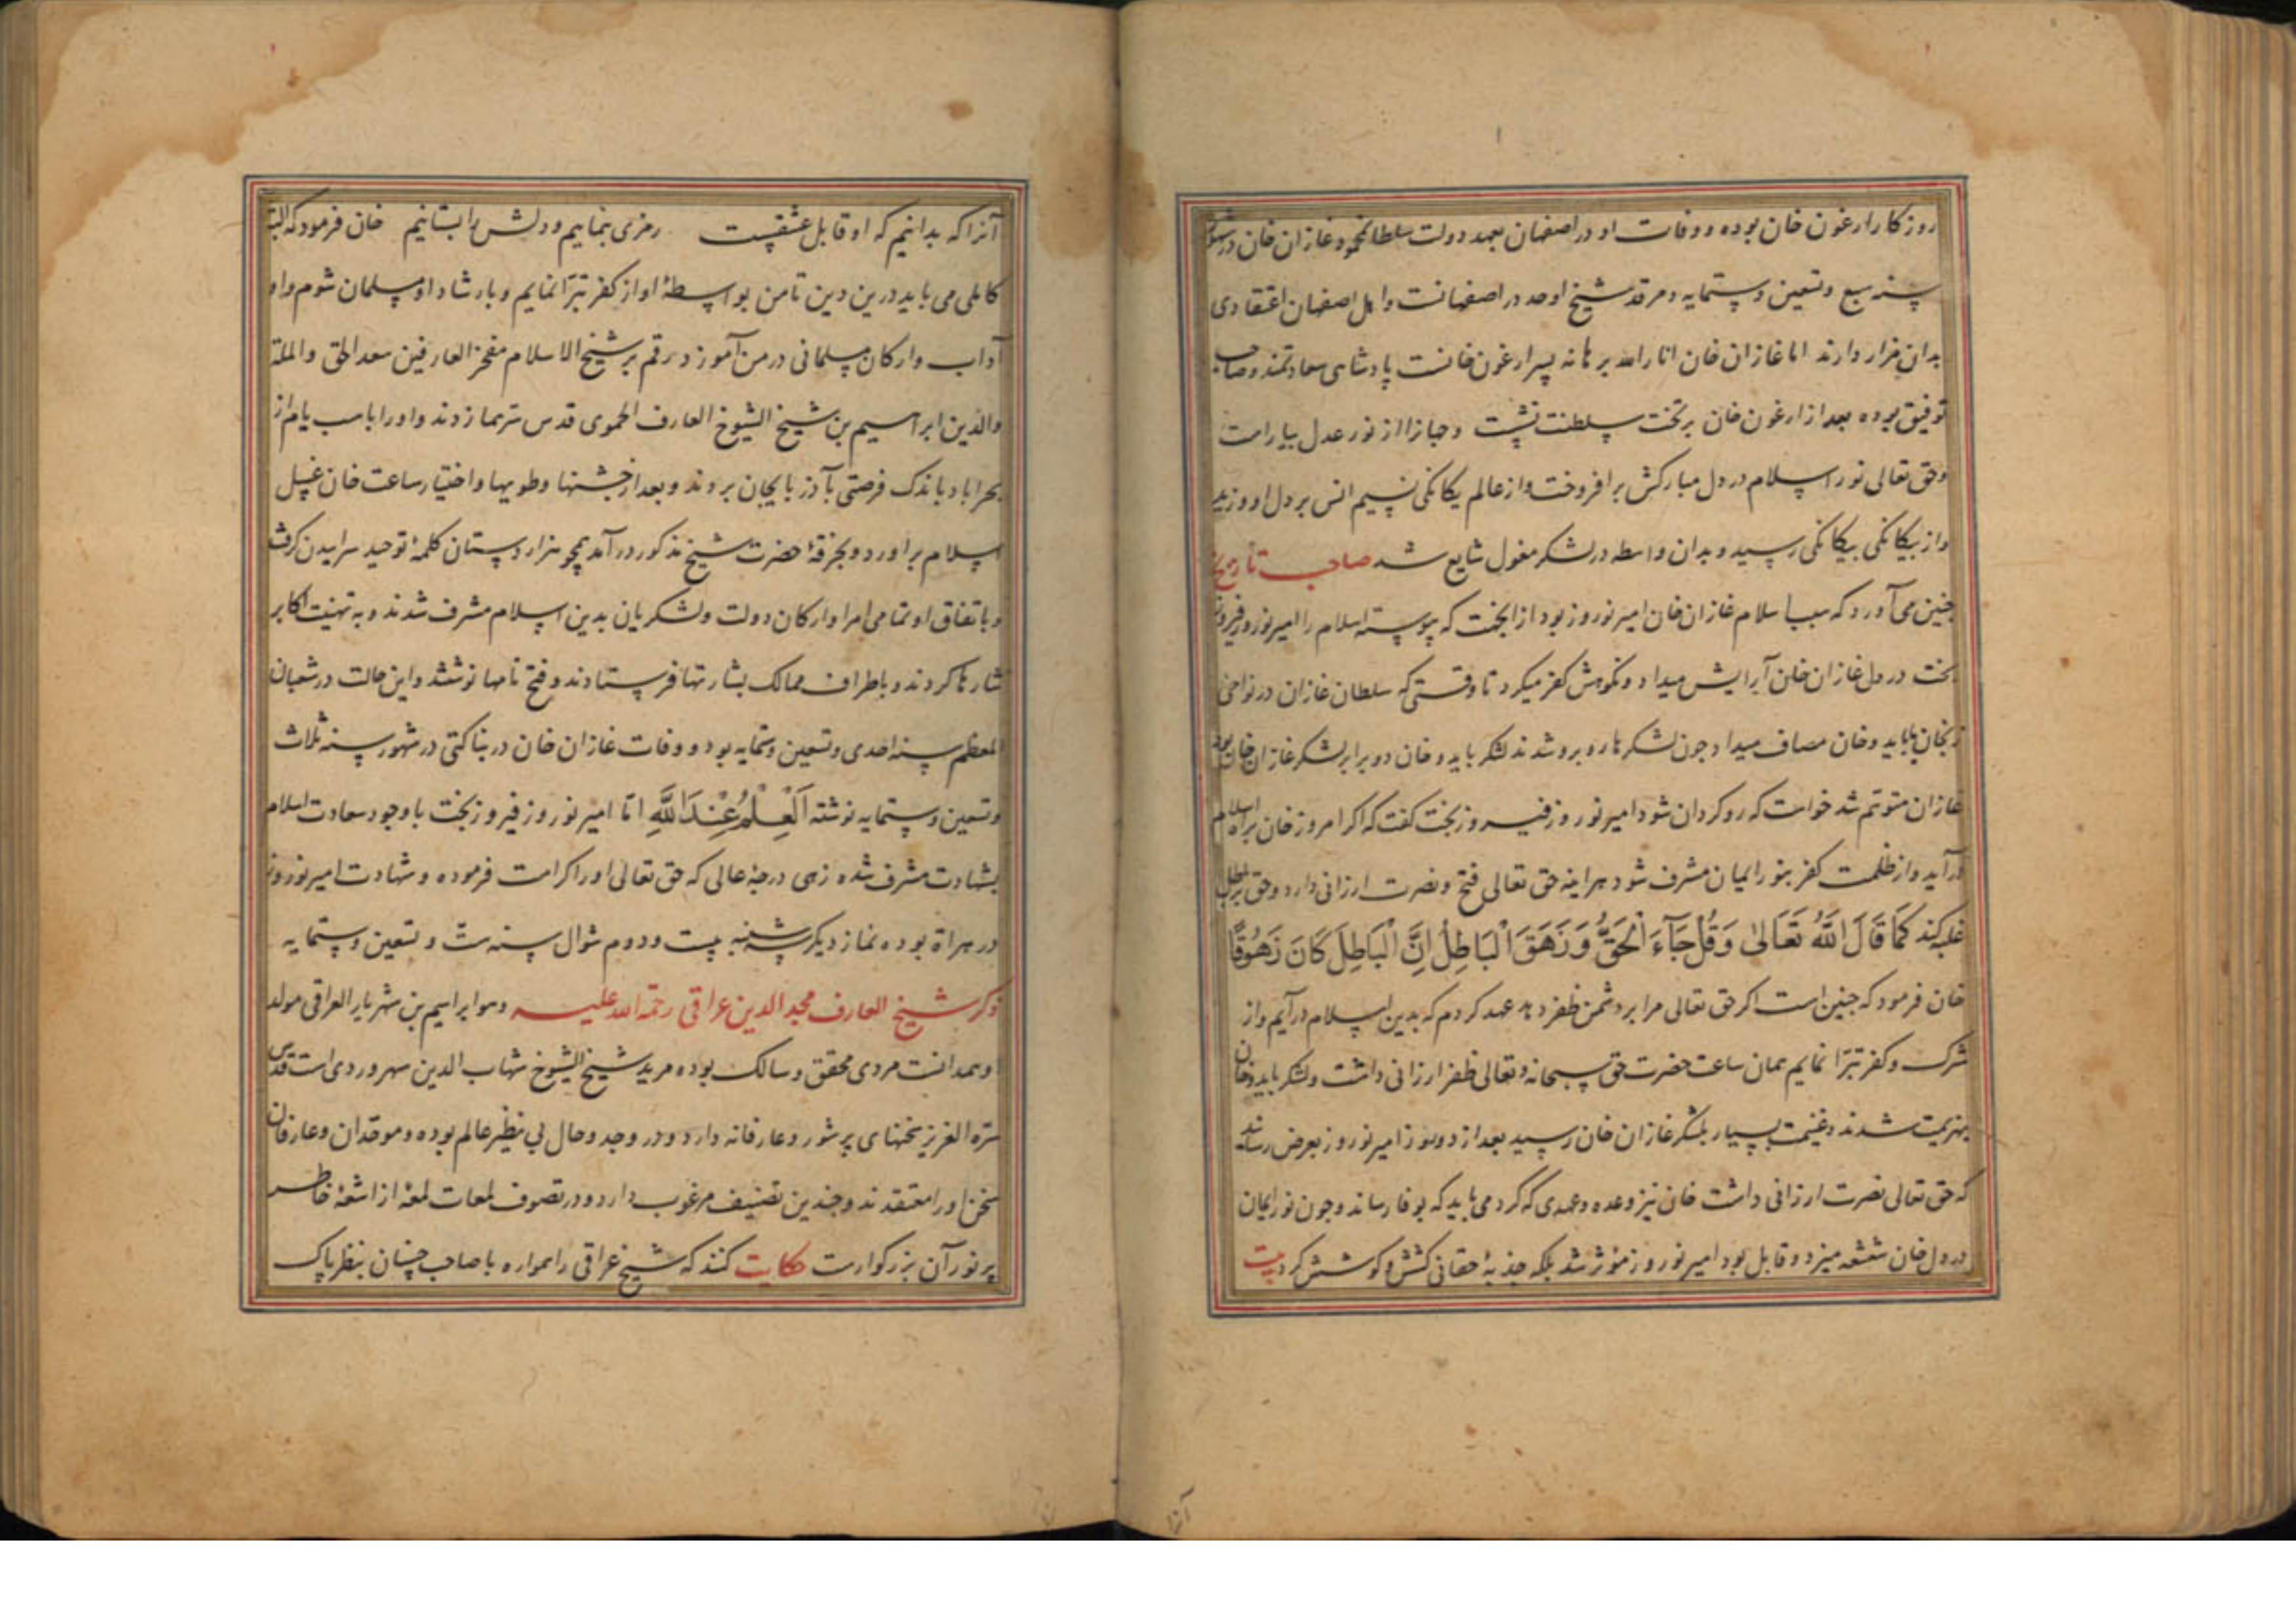 روزکار ارغون خان بوده و وفات او در اصفهان بعهد دولت سلطان محمود غازان خان در شهور
سنه سبع و تسعین و ستمایه و مرقد شیخ اوحد در اصفهانست و اهل اصفهان اعتقادی
بدان مزار دارند اما غازان خان انار الله برهانه پسر ارغون خانست پادشاهی سعادتمند و صاحب
توفیق بوده بعد از ارغون خان بر تخت سلطنت نشست و جهانرا از نور عدل بیاراست
و حق تعالی نور اسلام در دل مبارکش برافروخت و از عالم یکانکی نسیم انس بر دل او وزید
و از بیکانکی بیکانکی رسید و بدان واسطه در لشکر مغول شایع شد صاحب تاریخ
چنین می آورد که سبب اسلام غازان خان امیر نوروز بود از انجهت که پیوسته اسلام را امیر نوروز فیروز
بخت در دل غازان خان آرایش میداد و نکوهش کفر میکرد تا وقتی که سلطان غازان در نواحی
زنجان با بایدو خان مصاف میداد چون لشکرها روبرو شدند لشکر بایدو خان دو برابر لشکر غازان خان بود
غازان متوهم شد خواست که روکردان شود امیر نوروز فیروز بخت کفت که اکر امروز خان براه اسلام
درآید و از ظلمت کفر بنور ایمان مشرف شود هراینه حق تعالی فتح و نصرت ارزانی دارد و حق بر باطل
غلبه کند کَمَا قَالَ اللّٰهُ تَعَالیٰ وَ قُلْ جَآءَ الْحَقُّ وَ زَهَقَ الْبَاطِلُ اِنَّ الْبَاطِلَ کَانَ زَهُوقًا
خان فرمود که چنین است اکر حق تعالی مرا بر دشمن ظفر دهد عهد کردم که بدین اسلام درآیم و از
شرک و کفر تبرّا نمایم همان ساعت حضرت حق سبحانه و تعالی ظفر ارزانی داشت و لشکر بایدو خان
بهزیمت شدند و غنیمت بسیار بلشکر غازان خان رسید بعد از دو روز امیر نوروز بعرض رسانید
که حق تعالی نصرت ارزانی داشت خان نیز وعده و عهدی که کرد می باید که بوفا رساند و چون نور ایمان
در دل خان شعشعه میزد و قابل بود امیر نوروز موثر شد بلکه جذبهٔ حقانی کشش و کوشش کرد بیت
آنرا که بدانیم که او قابل عشقست رمزی بنماییم و دلش را بستانیم خان فرمود که البته
کاملی می باید درین دین تا من بواسطهٔ او از کفر تبرّا نمایم و بارشاد او مسلمان شوم و او
آداب و ارکان مسلمانی در من آموزد رقم بر شیخ الاسلام مفخر العارفین سعد الحق والملة
والدین ابراهیم بن شیخ الشیوخ العارف الحموی قدس سرهما زدند و او را با سب یام از
بحراباد باندک فرصتی بآذربایجان بردند و بعد از جشنها و طویها و اختیار ساعت خان غسل
اسلام برآورد و بخرقهٔ حضرت شیخ مذکور درآمد همچو هزار دستان کلمهٔ توحید سراییدن کرفت
و باتفاق او تمامی امرا و ارکان دولت و لشکریان بدین اسلام مشرف شدند و به تهنیت اکابر
نثارها کردند و باطراف ممالک بشارتها فرستادند و فتح نامها نوشتند و این حالت در شعبان
المعظم سنه احدی و تسعین و ستمایه بود و وفات غازان خان در بناکتی در شهور سنه ثلاث
و تسعین و ستمایه نوشته اَلْعِلْمُ عِنْدَ اللّٰهِ امّا امیر نوروز فیروز بخت با وجود سعادت اسلام
بشهادت مشرف شده زهی درجهٔ عالی که حق تعالی او را کرامت فرموده و شهادت امیر نوروز
در هراة بوده نماز دیکر شنبه بیست و دوم شوال سنه ست و تسعین و ستمایه
ذکر شیخ العارف مجد الدین عراقی رحمة الله علیه و هو ابراهیم بن شهریار العراقی مولد
او همدانست مردی محقق و سالک بوده مرید شیخ الشیوخ شهاب الدین سهروردی است قدس
سرّه العزیز سخنهای پرشور و عارفانه دارد و در وجد و حال بی نظیر عالم بوده و موحدان و عارفان
سخن او را معتقدند و چندین تصنیف مرغوب دارد و در تصوف لمعات لمعهٔ از اشعهٔ خاطر
پرنور آن بزرکوارست حکایت کنند که شیخ عراقی را همواره با صاحب حسنان بنظر پاک
آنرا